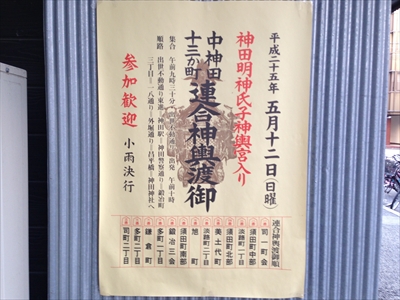 平成二十五年 五月十二日(日曜)
神田明神氏子神輿宮入り
中神田
十三か町
連合神輿渡御
集合 午前九時三十分 出世不動通り 出発 午前十時
順路 出世不動通り東進―神田駅―神田警察通り―鍛冶町
三丁目―一八通り―外堀通り―昌平橋―神田神社へ
参加歓迎 小雨決行
連合神輿渡御順
司一町会
須田町中部
淡路町一丁目
須田町北部
美土代町
淡路町二丁目
旭町
須田町南部
鍛冶三会
多町一丁目
鎌倉町
多町二丁目
司町二丁目